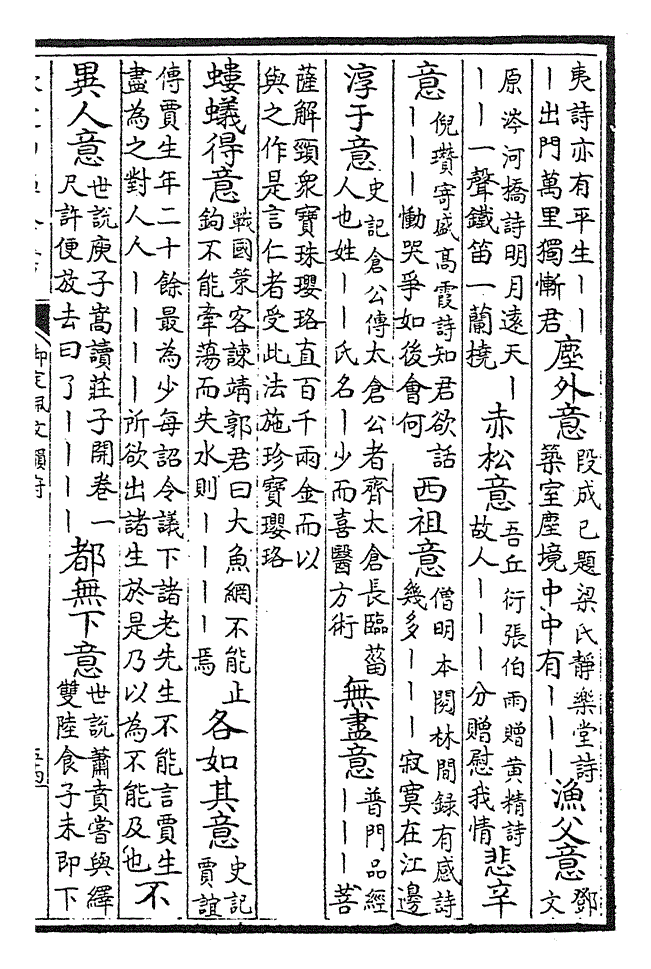 夷詩亦有平生丨丨
丨出門萬里獨慚君
塵外意
段成己題梁氏靜樂堂詩
築室塵境中中有丨丨丨
漁父意
鄧
文
原涔河橋詩明月遠天丨
丨丨一聲鐵笛一蘭橈
赤松意
吾丘衍張伯雨贈黄精詩
故人丨丨丨分贈慰我情
悲辛
意
倪瓚寄盛高霞詩知君欲話
丨丨丨慟哭爭如後會何
西祖意
僧明本閱林間録有感詩
幾多丨丨丨寂寞在江邊
淳于意
史記倉公傳太倉公者齊太倉長臨菑
人也姓丨丨氏名丨少而喜醫方術
無盡意
普門品經
丨丨丨菩
薩解頸衆寶珠瓔珞直百千兩金而以
與之作是言仁者受此法施珍寶瓔珞
螻蟻得意
戰國策客諫靖郭君曰大魚網不能止
鉤不能牽蕩而失水則丨丨丨丨焉
各如其意
史記
賈誼
傳賈生年二十餘最為少每詔令議下諸老先生不能言賈生
盡為之對人人丨丨丨丨所欲出諸生於是乃以為不能及也
不
異人意
世說庾子嵩讀莊子開卷一
尺許便放去曰了丨丨丨丨
都無下意
世說蕭賁嘗與繹
雙陸食子未即下
御定佩文韻府